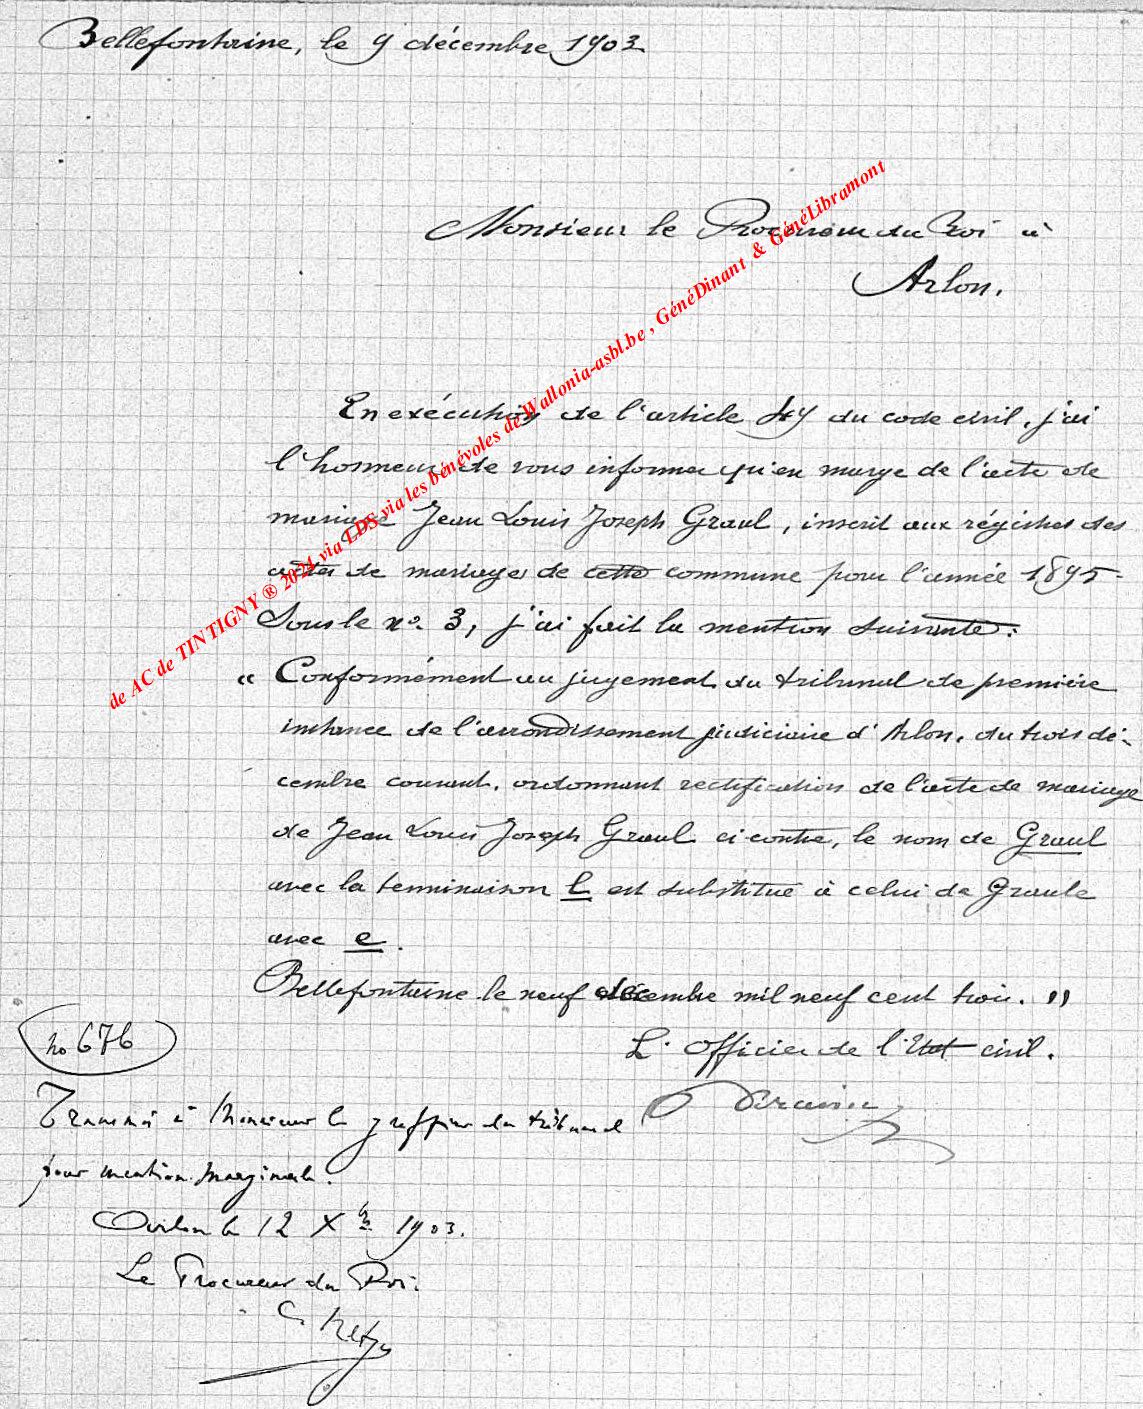 Bellefontaine, le 9 décembre 1903
Monsieur le Procureur du Roi à
Arlon.
En exécution de l'article 49 du code civil, j'ai
l'honneur de vous informer qu'en marge de l'acte de
mariage Jean Louis Joseph Graul, inscrit aux régistres des
actes de mariages de cette commune pour l'année 1895
sous le no 3, j'ai fait la mention suivante :
« Conformément au jugement du tribunal de première
instance de l'arrondissement judiciaire d'Arlon, du trois dé-
cembre courant, ordonnant rectification de l'acte de mariage
de Jean Louis Joseph Graul ci-contre, le nom de Graul
avec la terminaison l est substitué à celui de Graule
avec e.
Bellefontaine le neuf décembre mil neuf cent trois. »
L'Officier de l'Etat civil.
no 676
Transmis à Monsieur le greffier du tribunal
pour mention marginale.
Arlon le 12 Xbre 1903.
Le Procureur du Roi.
de AC de TINTIGNY ® 2024 via LDS via les bénévoles de Wallonia-asbl.be , GénéDinant & GénéLibramont